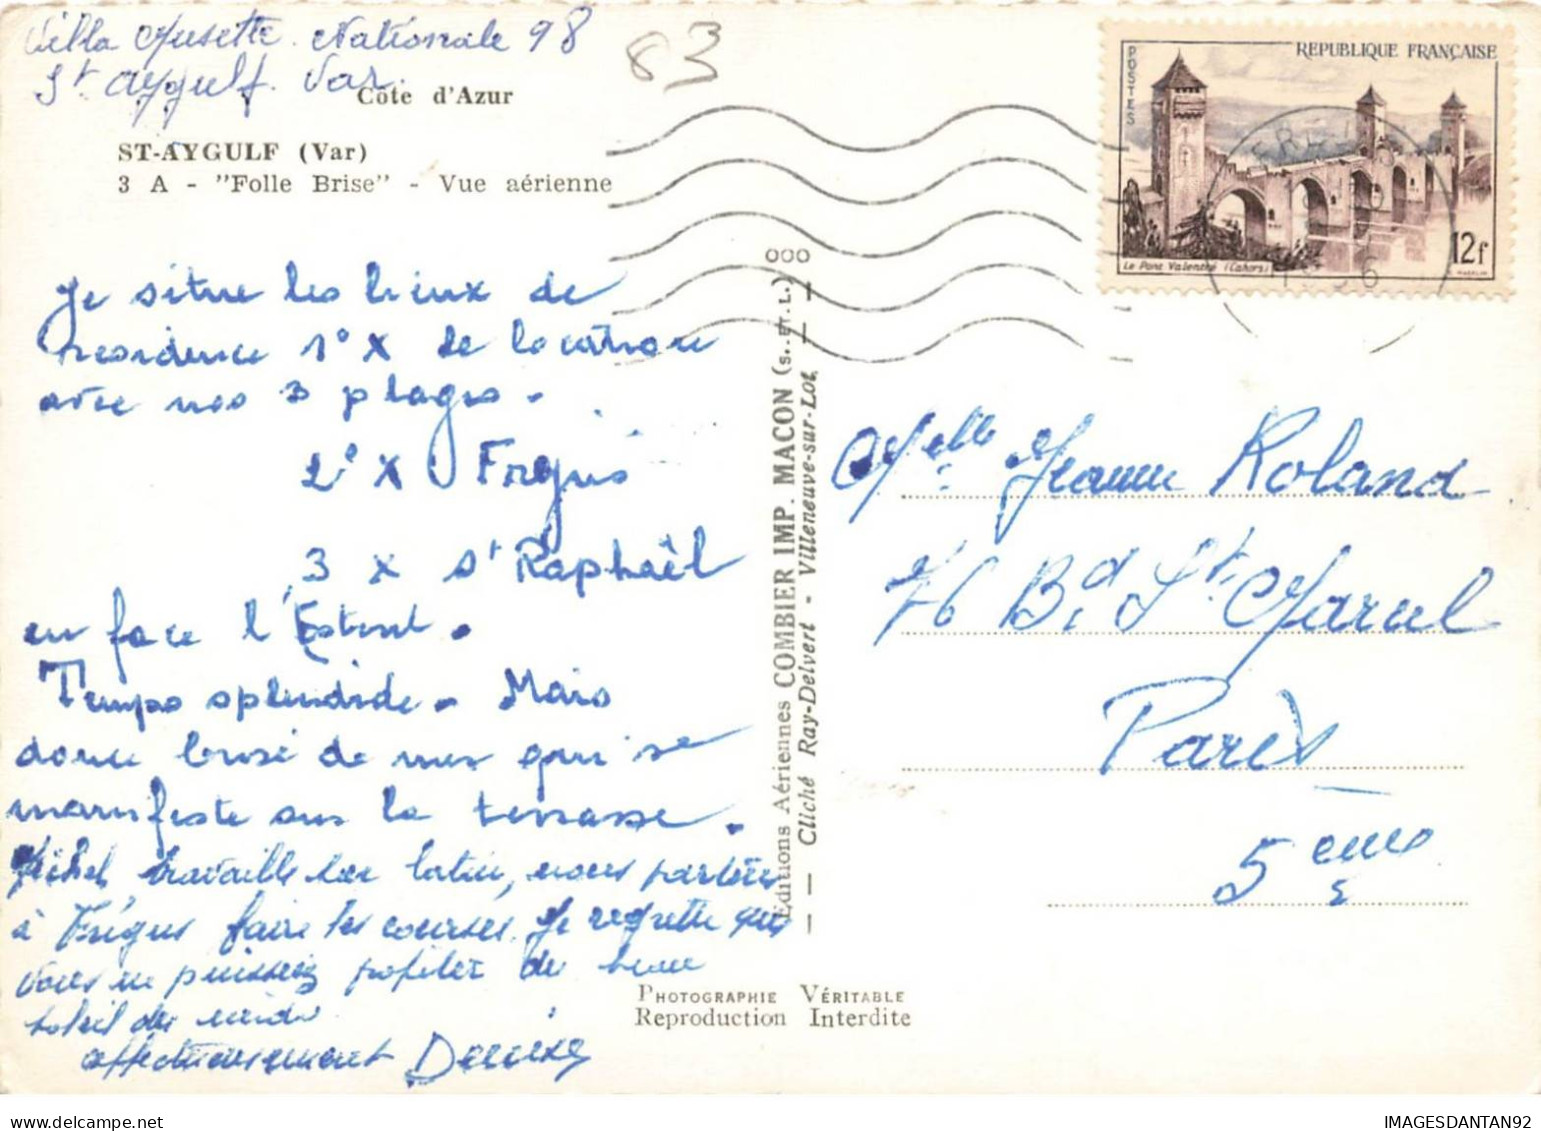 Villa Musette. Nationale 98
St Aygulf. Var.
83
Côte d'Azur
ST-AYGULF (Var)
3 A - "Folle Brise" - Vue aérienne
Je situe les lieux de
residence 1° X de location
avec nos 3 plages.
2° X Fréjus
3 X St Raphaël
en face l'
Temps splendide. Mais
douce brise de mer qui se
manifeste sur la terrasse.
Michel travaille son latin, nous partons
à Fréjus faire les courses. Je regrette que
vous ne puissiez profiter du beau
soleil du midi
affectueusement Denise
OOO
Editions Aériennes COMBIER IMP. MACON (S.-ET-L.)
Cliché Ray-Delvert - Villeneuve-sur-Lot
PHOTOGRAPHIE VÉRITABLE
Reproduction Interdite
POSTES
REPUBLIQUE FRANÇAISE
Le Pont Valentré (Cahors)
12f
Melle Jeanne Roland
76 Bd St Marcel
Paris
5eme
IMAGESDANTAN92